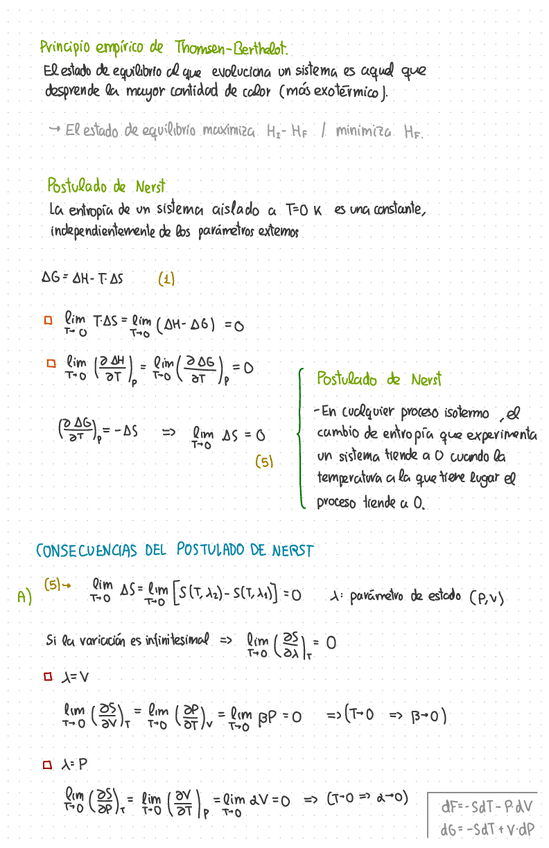 Principio empírico de Thomsen-Berthelot.
El estado de equilibrio al que evoluciona un sistema es aquel que
desprende la mayor cantidad de calor (más exotérmico).
→ El estado de equilibrio maximiza H_I - H_F / minimiza H_F.
Postulado de Nerst
La entropía de un sistema aislado a T=0 K es una constante,
independientemente de los parámetros externos
ΔG = ΔH - T·ΔS (1)
lim_{T→0} T·ΔS = lim_{T→0} (ΔH - ΔG) = 0
lim_{T→0} (∂ΔH/∂T)_P = lim_{T→0} (∂ΔG/∂T)_P = 0
(∂ΔG/∂T)_P = -ΔS ⇒ lim_{T→0} ΔS = 0
(5)
Postulado de Nerst
- En cualquier proceso isotermo, el
cambio de entropía que experimenta
un sistema tiende a 0 cuando la
temperatura a la que tiene lugar el
proceso tiende a 0.
CONSECUENCIAS DEL POSTULADO DE NERST
A) (5)→ lim_{T→0} ΔS = lim_{T→0} [S(T,λ₂) - S(T,λ₁)] = 0 λ: parámetro de estado (P,V)
Si la variación es infinitesimal ⇒ lim_{T→0} (∂S/∂λ)_T = 0
λ=V
lim_{T→0} (∂S/∂V)_T = lim_{T→0} (∂P/∂T)_V = lim_{T→0} βP = 0 ⇒ (T→0 ⇒ β→0)
λ=P
lim_{T→0} (∂S/∂P)_T = lim_{T→0} (∂V/∂T)_P = lim_{T→0} αV = 0 ⇒ (T→0 ⇒ α→0)
dF = -SdT - PdV
dG = -SdT + V·dP